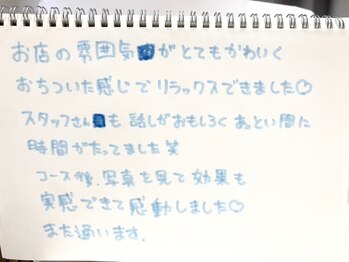 お店の雰囲気がとてもかわいく
おちついた感じでリラックスできました♡
スタッフさんも話しがおもしろくあっとい間に
時間がたってました笑
コース後、写真を見て効果も
実感できて感動しました♡
また通います。